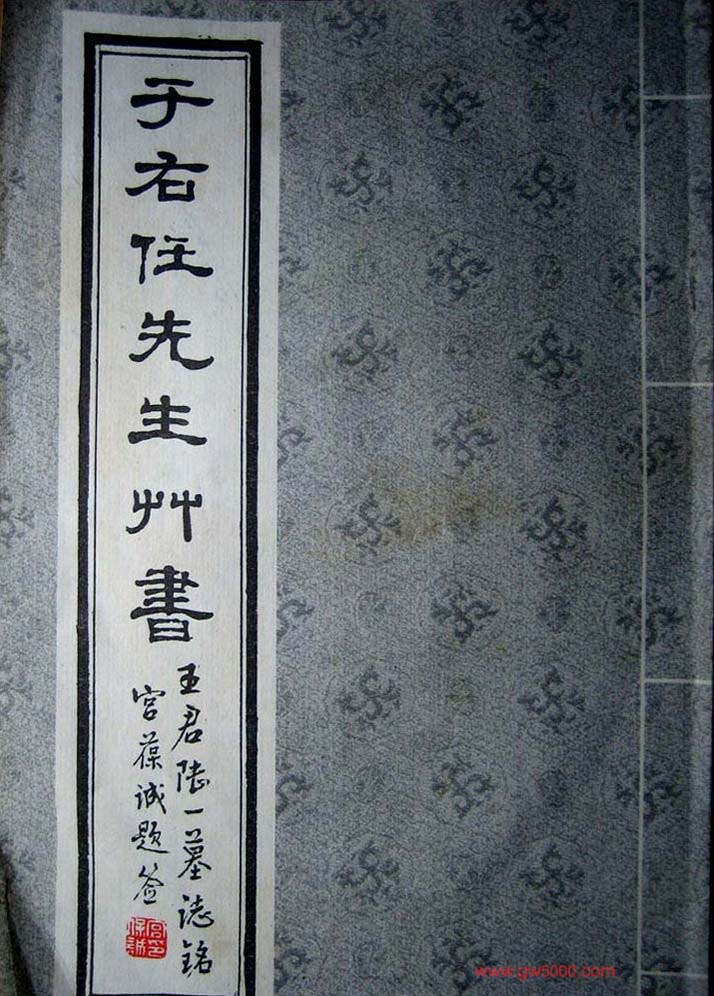 于右任先生艸書
王君陆一墓誌銘
宫葆诚题签
宫葆诚印
www.gw5000.com